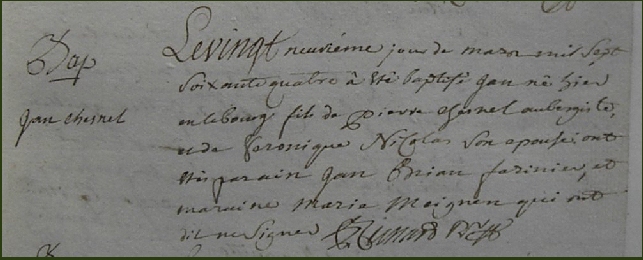 Bap
Jan chesnel
Le vingt neuvième jour de mars mil sept
soixante quatre à été baptisé Jan né hier
en le bourg fils de Pierre chesnel aubergiste,
et de Veronique Nicolas son epouse; ont
étés parain Jan Brian farinier, et
maraine Marie Meignen qui ont
dit ne signer